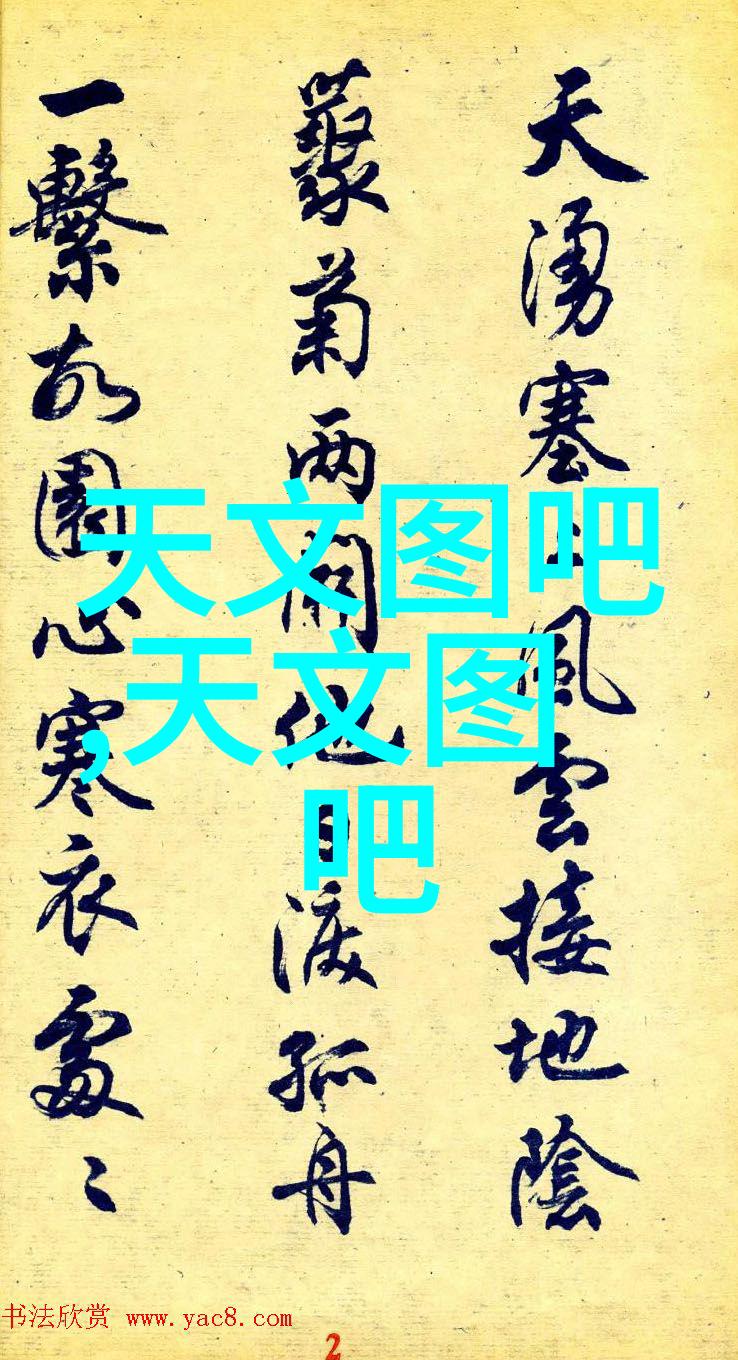 天湧塞上風雲接地陰
叢菊两開他日淚孤舟
一繫故園心寒衣處々
天文图吧
,天文图
吧
书法欣赏 www.yac8.com
2